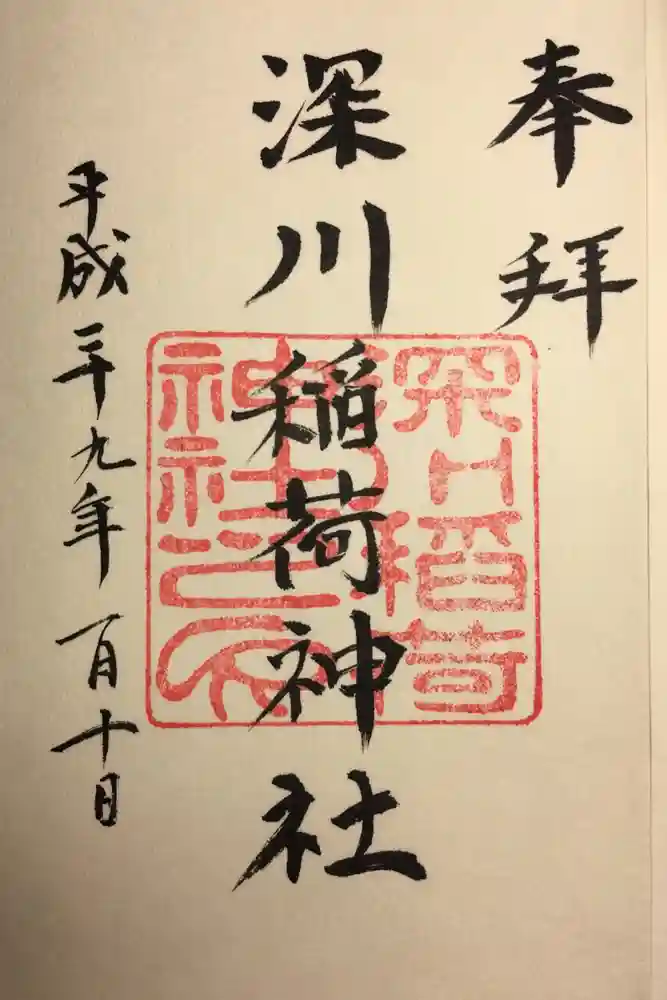 奉拝
深川稲荷神社
平成二十九年一月十日
深川稲荷
神社之印